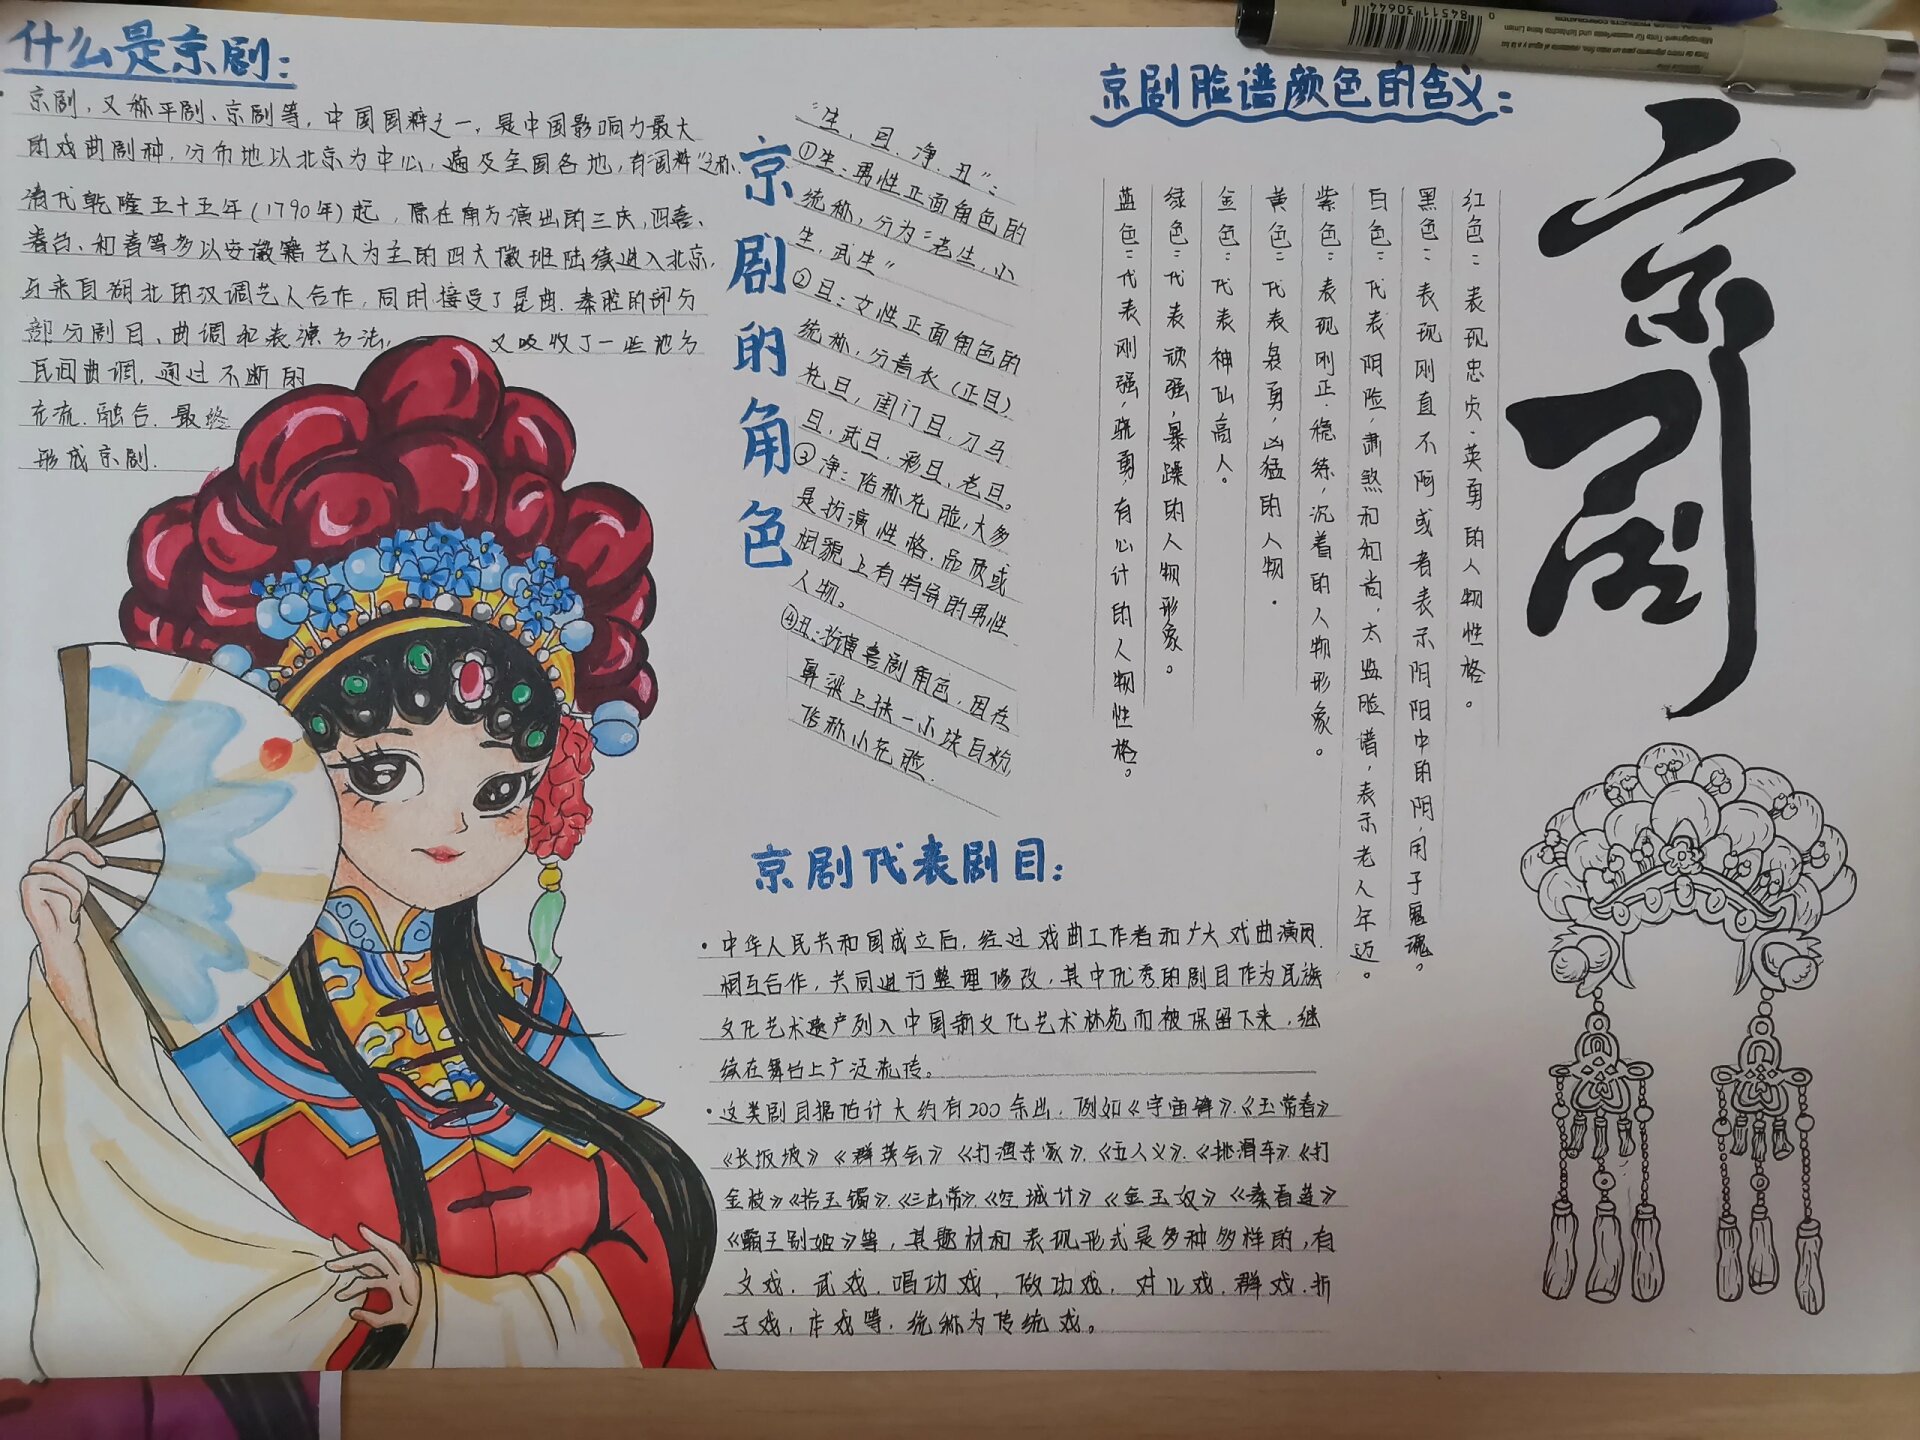 什么是京剧:
京剧，又称平剧、京剧等，中国国粹之一，是中国影响力最大
的戏曲剧种，分布地以北京为中心，遍及全国各地，有"国粹"之称.
清代乾隆五十五年(1790年)起，原在南方演出的三庆，四喜、
春台、和春等多以安徽籍艺人为主的四大徽班陆续进入北京，
与来自湖北的汉调艺人合作，同时接受了昆曲.秦腔的部分
部分剧目、曲调和表演方法， 又吸收了一些地方
民间曲调，通过不断的
交流.融合.最终
形成京剧.
京剧的角色
"生，旦.净.丑"：
①生：男性正面角色的
统称，分为"老生，小
生，武生"
②旦：女性正面角色的
统称，分青衣（正旦）
花旦，闺门旦，刀马
旦，武旦，彩旦，老旦。
③净：俗称花脸，大多
是扮演性格.品质或
相貌上有特异的男性
人物。
④丑：扮演喜剧角色，因在
鼻梁上抹一小块白粉，
俗称小花脸.
京剧脸谱颜色的含义：
红色：表现忠贞.英勇的人物性格。
黑色：表现刚直不阿或者表示阴阳中的阴，用于鬼魂。
白色：代表阴险，肃煞和和尚.太监脸谱，表示老人年迈。
紫色：表现刚正，稳练，沉着的人物形象。
黄色：代表骁勇，凶猛的人物.
金色：代表神仙高人。
绿色：代表顽强，暴躁的人物形象。
蓝色：代表刚强，骁勇，有心计的人物性格。
京剧
京剧代表剧目：
·中华人民共和国成立后，经过戏曲工作者和广大戏曲演员
相互合作，共同进行整理修改，其中优秀的剧目作为民族
文化艺术遗产列入中国新文化艺术林苑而被保留下来，继
续在舞台上广泛流传。
·这类剧目据估计大约有200余出，例如《宇宙锋》.《玉堂春》
《长坂坡》《群英会》《打渔杀家》.《五人义》.《挑滑车》.《打
金枝》《拾玉镯》.《三岔口》.《空城计》《金玉奴》《秦香莲》
《霸王别姬》等，其题材和表现形式是多种多样的，有
文戏.武戏.唱功戏，做功戏，对儿戏.群戏.折
子戏，本戏等，统称为传统戏。
0 84511 30644 8